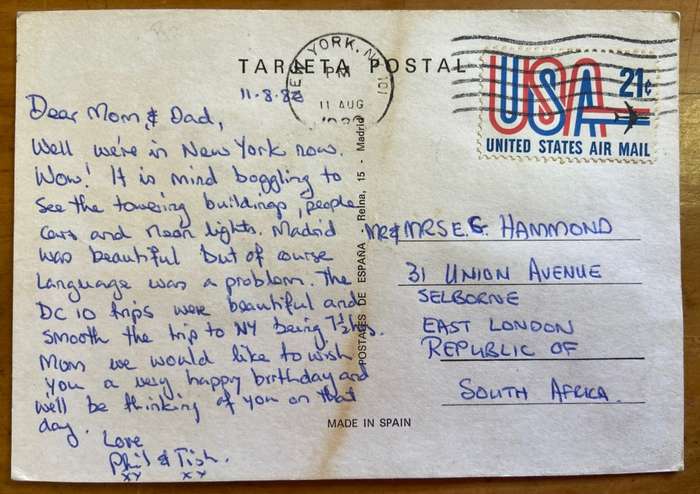 TARJETA POSTAL
NEW YORK, N.
PM
11 AUG
101
USA
21¢
UNITED STATES AIR MAIL
11-8-82
Dear Mom & Dad,
Well we're in New York now.
Wow! It is mind boggling to
see the towering buildings, people
cars and neon lights. Madrid
was beautiful but of course
language was a problem. The
DC 10 trips were beautiful and
smooth the trip to NY being 7½hrs.
Mom we would like to wish
you a very happy birthday and
we'll be thinking of you on that
day.
Love
Phil & Tish.
xx xx
POSTALES DE ESPAÑA - Reina, 15 - Madrid
MR & MRS E.G. HAMMOND
31 UNION AVENUE
SELBORNE
EAST LONDON
REPUBLIC OF
SOUTH AFRICA.
MADE IN SPAIN